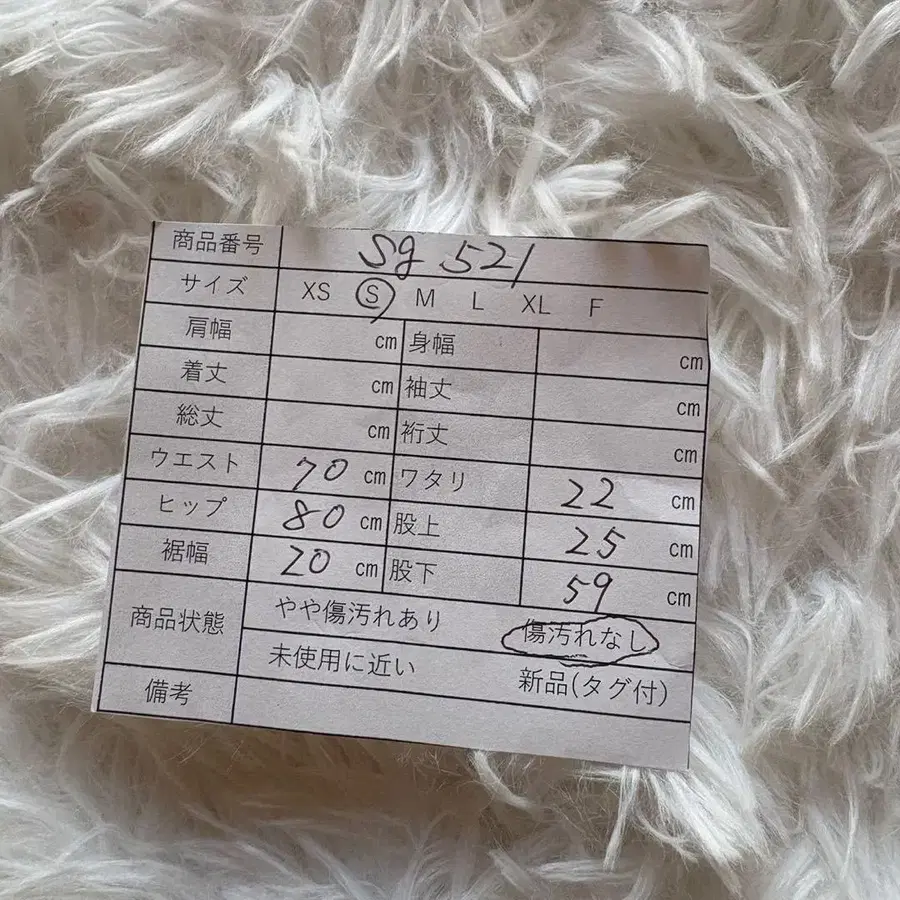 商品番号 Sg 521
サイズ XS S M L XL F
肩幅 cm 身幅 cm
着丈 cm 袖丈 cm
総丈 cm 裄丈 cm
ウエスト 70 cm ワタリ 22 cm
ヒップ 80 cm 股上 25 cm
裾幅 20 cm 股下 59 cm
商品状態 やや傷汚れあり 傷汚れなし
未使用に近い 新品(タグ付)
備考